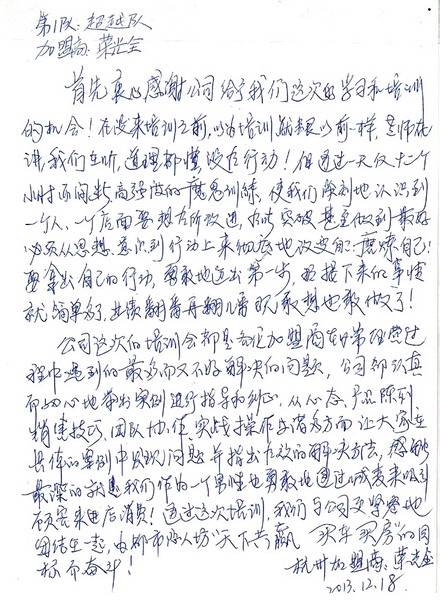 第1队：超越队
加盟商：荣光全
首先衷心感谢公司给予我们这次的学习和培训
的机会！在没来培训之前，以为培训就跟以前一样，老师在
讲，我们在听，道理都懂，没有行动！但通过一天仅十二个
小时不间断，高强度的魔鬼训练，使我们深刻地认识到
一个人，一个店面要想有所改进，有所突破甚至做到最好
必须从思想、意识到行动上来彻底地改变自己，磨炼自己！
要拿出自己的行动，勇敢地迈出第一步，那接下来的事情
就简单多了，业绩翻番再翻几番既敢想也敢做了！
公司这次的培训会都是各位加盟商在日常经营过
程中遇到的最多而又不好解决的问题，公司都认真
而细心地举出案例进行指导和纠正，从心态、产品陈列
销售技巧、团队协作、实战操作等诸多方面让大家在
具体的案例中发现问题并指出有效的解决方法，感触
最深的就是我们作为一个男性也勇敢地通过成衣来吸引
顾客来进店消费！通过这次培训，我们与公司更紧密地
团结在一起，为都市丽人坊“天下共赢 买车买房”的目
标而奋斗！
杭州加盟商：荣光全
2013.12.18